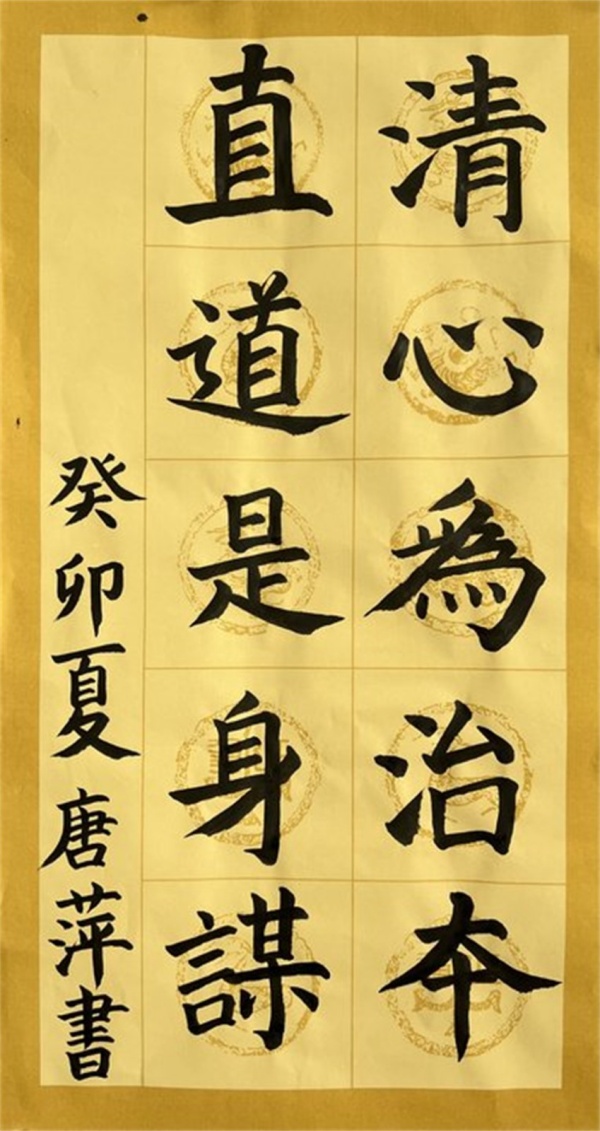 清心為治本
直道是身謀
癸卯夏唐萍書